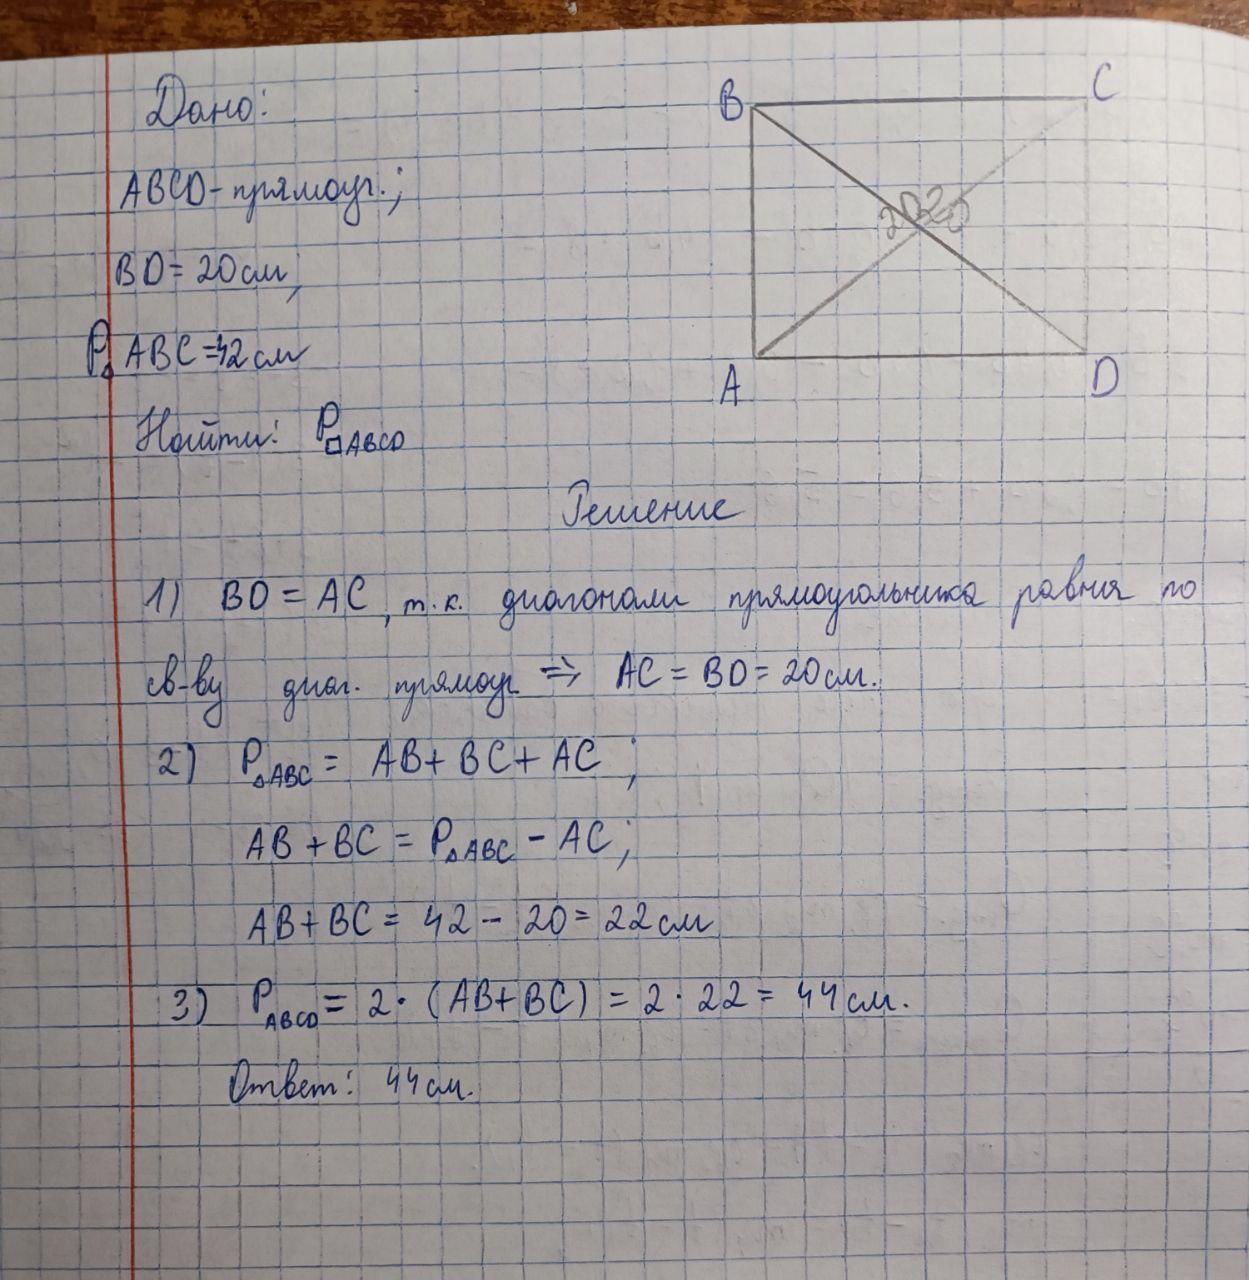 Дано:
B
C
ABCD - прямоуг.;
20 20
BD = 20 см,
P△ ABC = 42 см
A
D
Найти: P□ABCD
Решение
1) BD = AC, т.к. диагонали прямоугольника равны по
св-ву диаг. прямоуг => AC = BD = 20 см.
2) P△ABC = AB + BC + AC ;
AB + BC = P△ABC - AC ;
AB + BC = 42 - 20 = 22 см
3) PABCD = 2 · (AB + BC) = 2 · 22 = 44 см.
Ответ: 44 см.